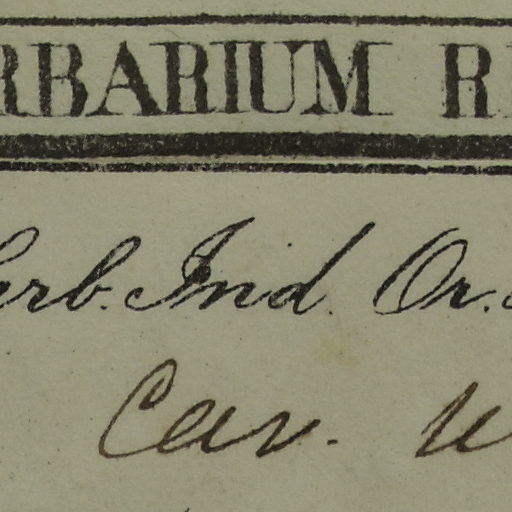 RBARIUM R
erb. Ind. Or.
Cav.